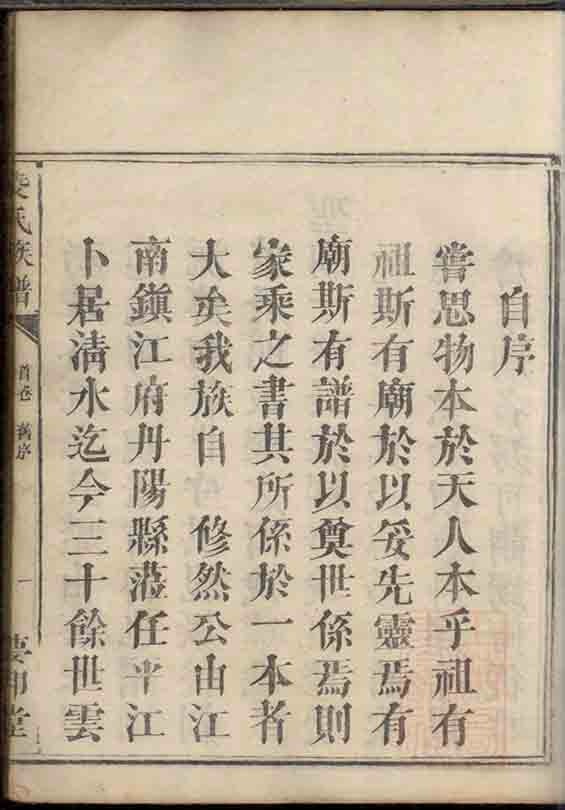 自序
嘗思物本於天人本乎祖有
祖斯有廟於以妥先靈焉有
廟斯有譜於以奠世係焉則
家乘之書其所係於一本者
大矣我族自 修然公由江
南鎮江府丹陽縣蒞任平江
卜居清水迄今三十餘世雲
氏族譜
首卷 舊序
一
堂